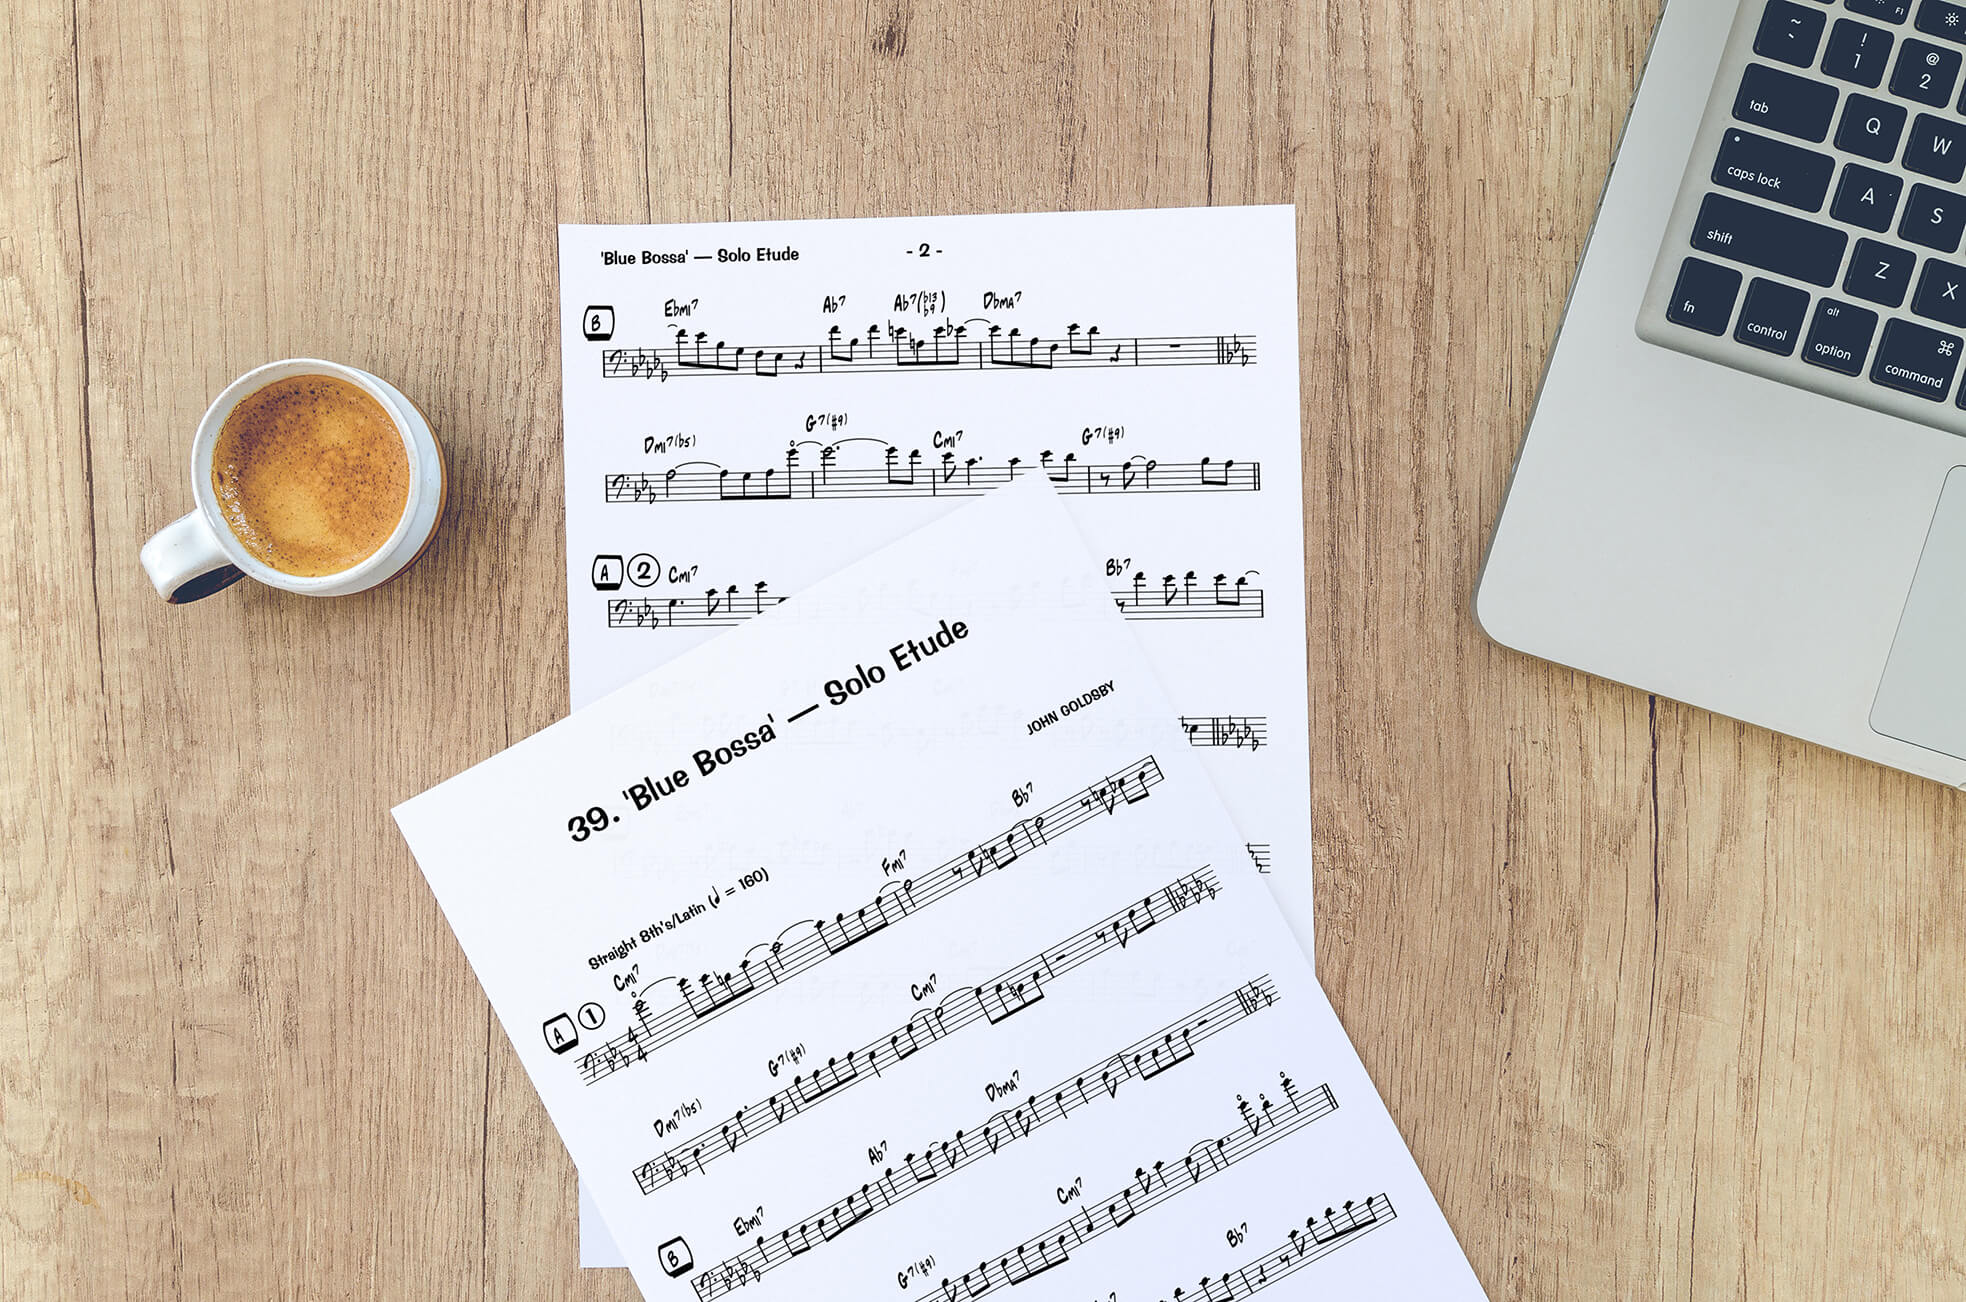 'Blue Bossa' — Solo Etude - 2 -
B Ebmi7 Ab7 Ab7(b13 b9) Dbma7
Dmi7(b5) G7(#9) Cmi7 G7(#9)
A 2 Cmi7 Bb7
39. 'Blue Bossa' — Solo Etude
JOHN GOLDSBY
Straight 8th's/Latin (♩ = 160)
A 1 Cmi7 Fmi7 Bb7
4
4
Dmi7(b5) G7(#9) Cmi7
B Ebmi7 Ab7 Dbma7
G7(#9) Cmi7
Bb7
F1
~ ! @
` 1 2
tab Q W
caps lock A S
shift Z X
fn control alt option ⌘ command